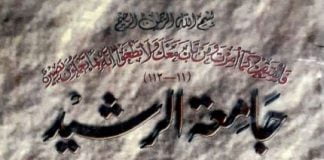 بسم الله الرحمن الرحيم
فاستقم كما أمرت ومن تاب معك ولا تطغوا إنه بما تعملون بصير
(١١ — ١١٢)
جامعة الرشيد